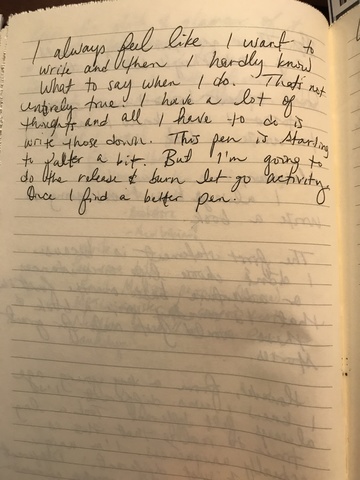 I always feel like I want to
write and then I hardly know
what to say when I do. That's not
entirely true. I have a lot of
thoughts and all I have to do is
write those down. This pen is starting
to palter a bit. But I'm going to
do the release & burn let go activity
Once I find a better pen.